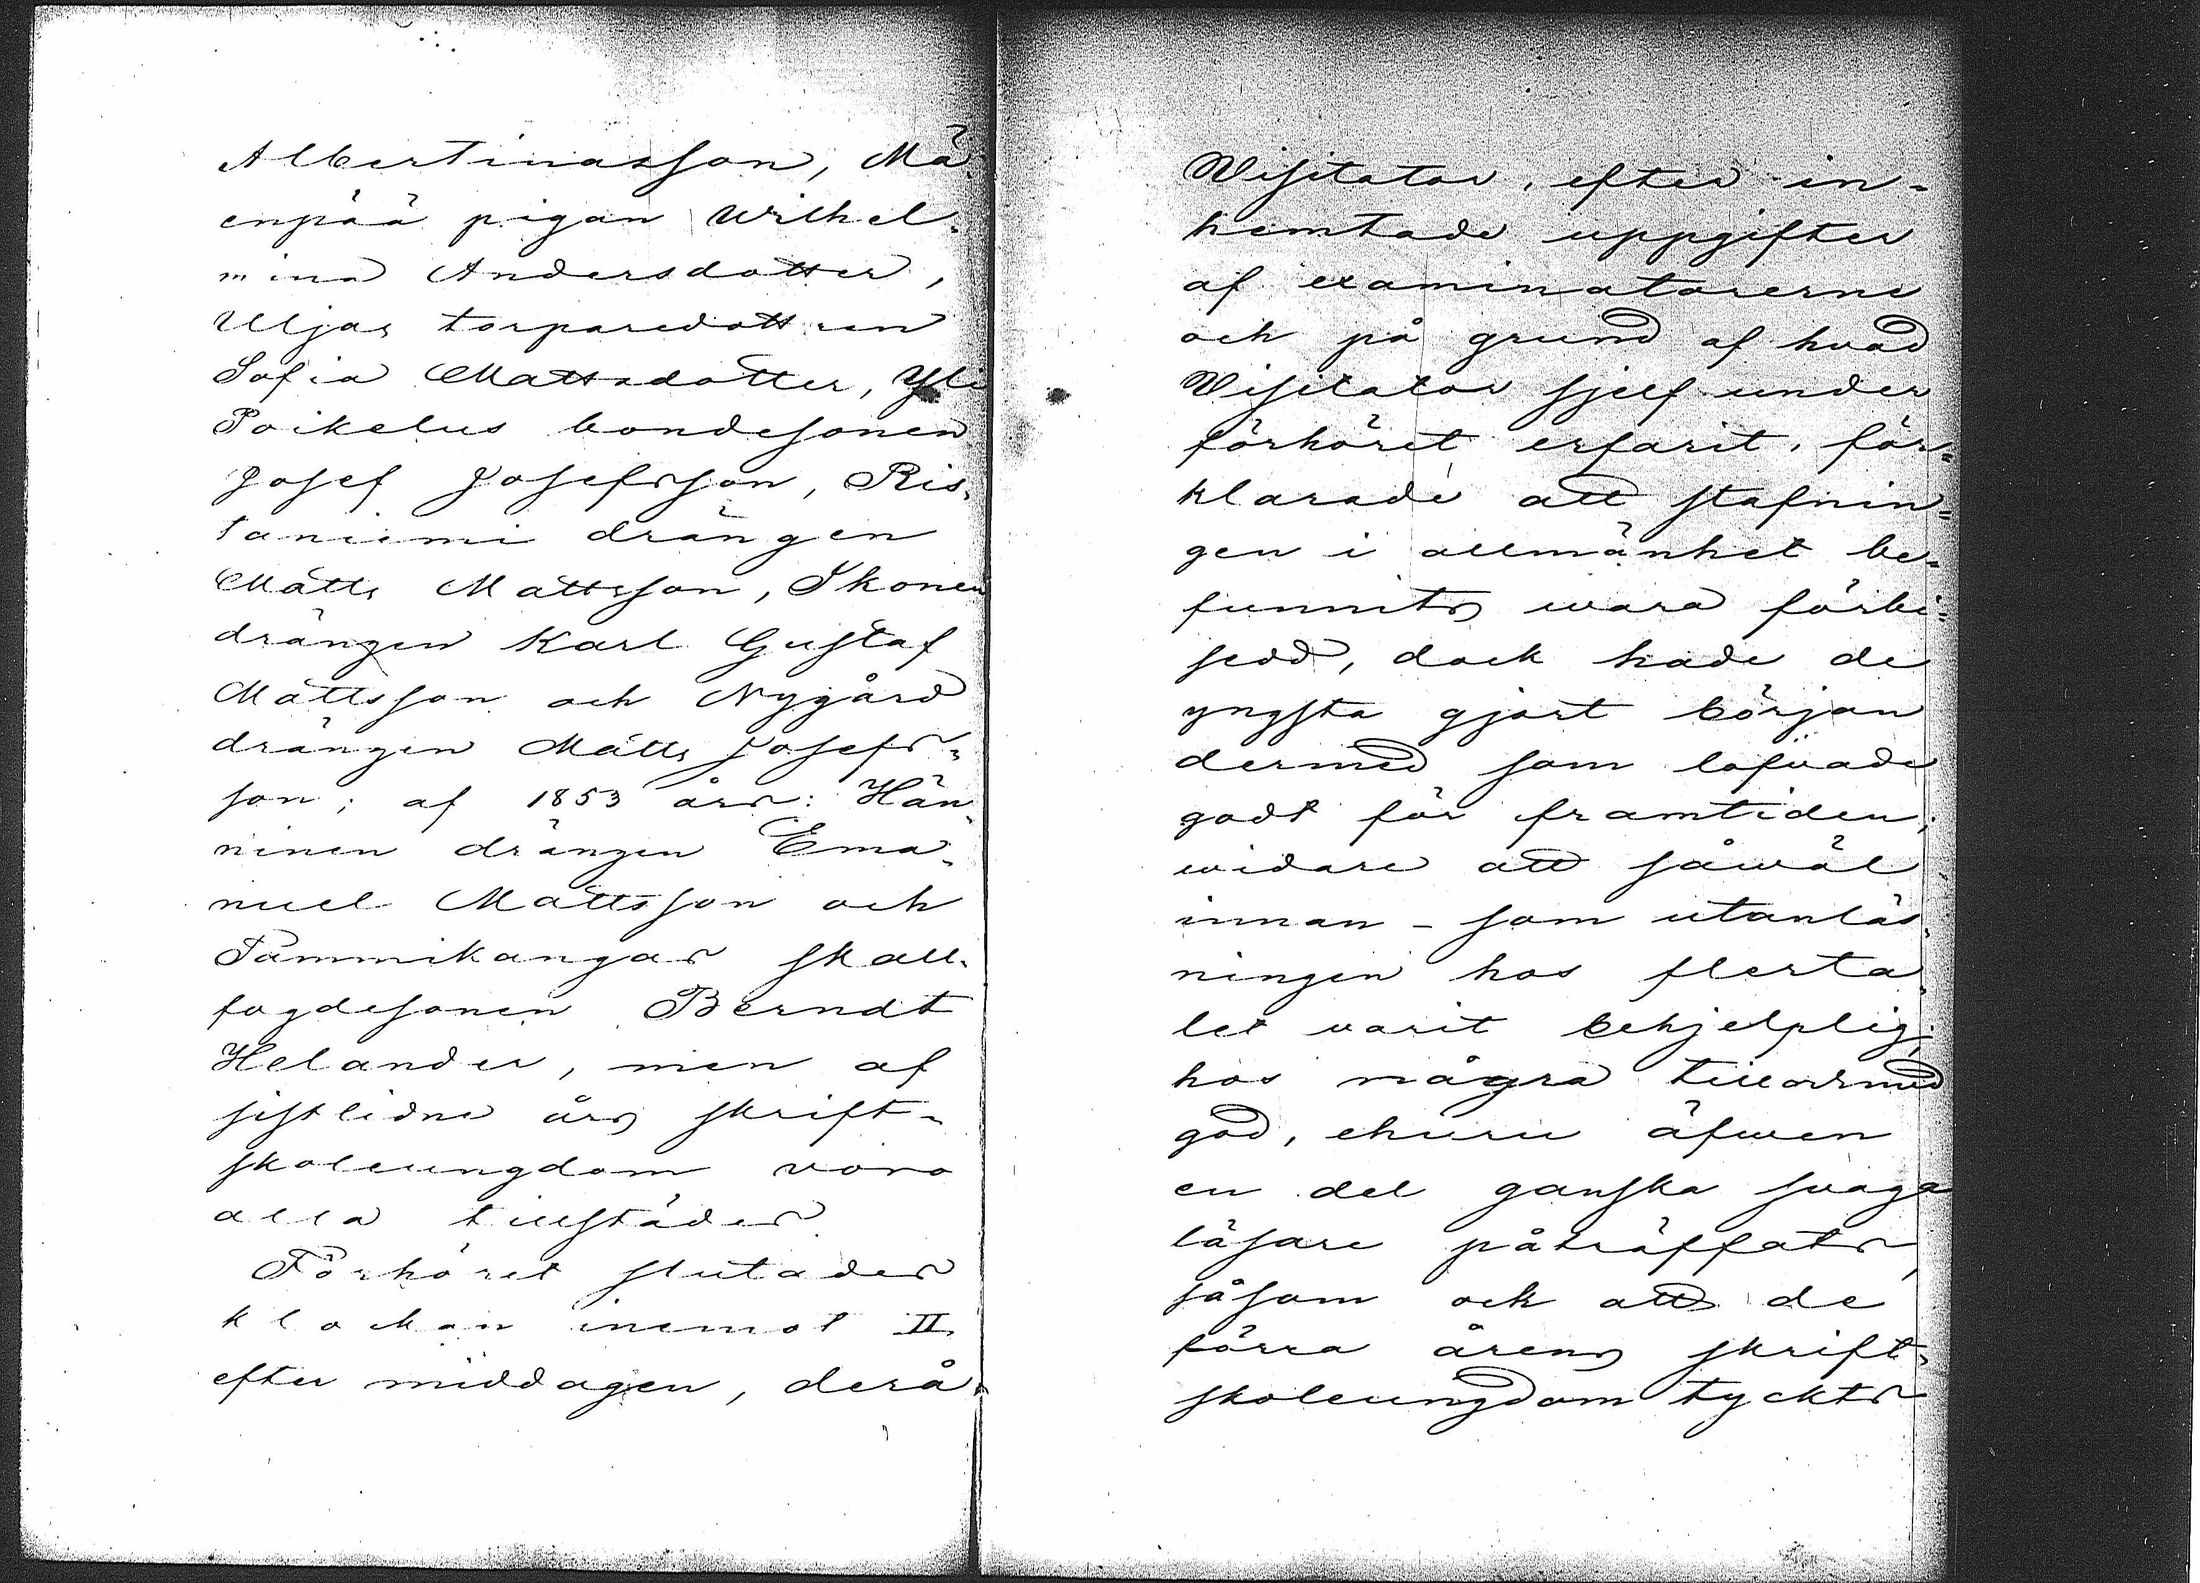 Albertinasson, Mä-
enpää pigan Wilhel-
mina Andersdotter,
Uljas torparedottren
Sofia Mattsdotter, Yli
Poikelus bondesonen
Josef Josefsson, Ris-
taniemi drängen
Matts Mattsson, Ikonen
drängen Karl Gustaf
Mattsson och Nygård
drängen Matts Josefs-
son; af 1853 års: Hän-
ninen drängen Ema-
nuel Mattsson och
Tammikangas skall-
fogdesonen Berndt
Helander, men af
sistlidne års skrift-
skoleungdom voro
alla tillstädes.
Förhöret slutades
klockan inemot II
efter middagen, derå
Visitator, efter in-
hemtade uppgifter
af examinatorerne
och på grund af hvad
Visitator sjelf under
förhöret erfarit, för-
klarade att stafnin-
gen i allmänhet be-
funnits wara förbi-
sedd, dock hade de
yngsta gjort början
dermed som lofvade
godt för framtiden;
widare att såwäl
innan- som utanläs-
ningen hos flerta-
let varit behjelplig;
hos några till och med
god, ehuru äfwen
en del ganska svaga
läsare påträffats,
såsom ock att de
förra årens skrift-
skoleungdom tyckts